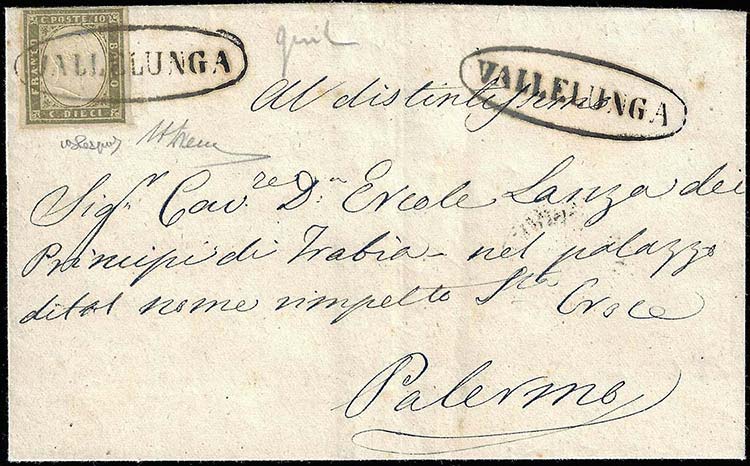 C. POSTE 10
FRANCO
BOLLO
C. DIECI
VALLELUNGA
VALLELUNGA
Al distintissmo
Sigr. Cav.re Dn Ercole Lanza dei
Principi di Trabia - nel palazzo
di tal nome rimpetto Sta Croce
Palermo